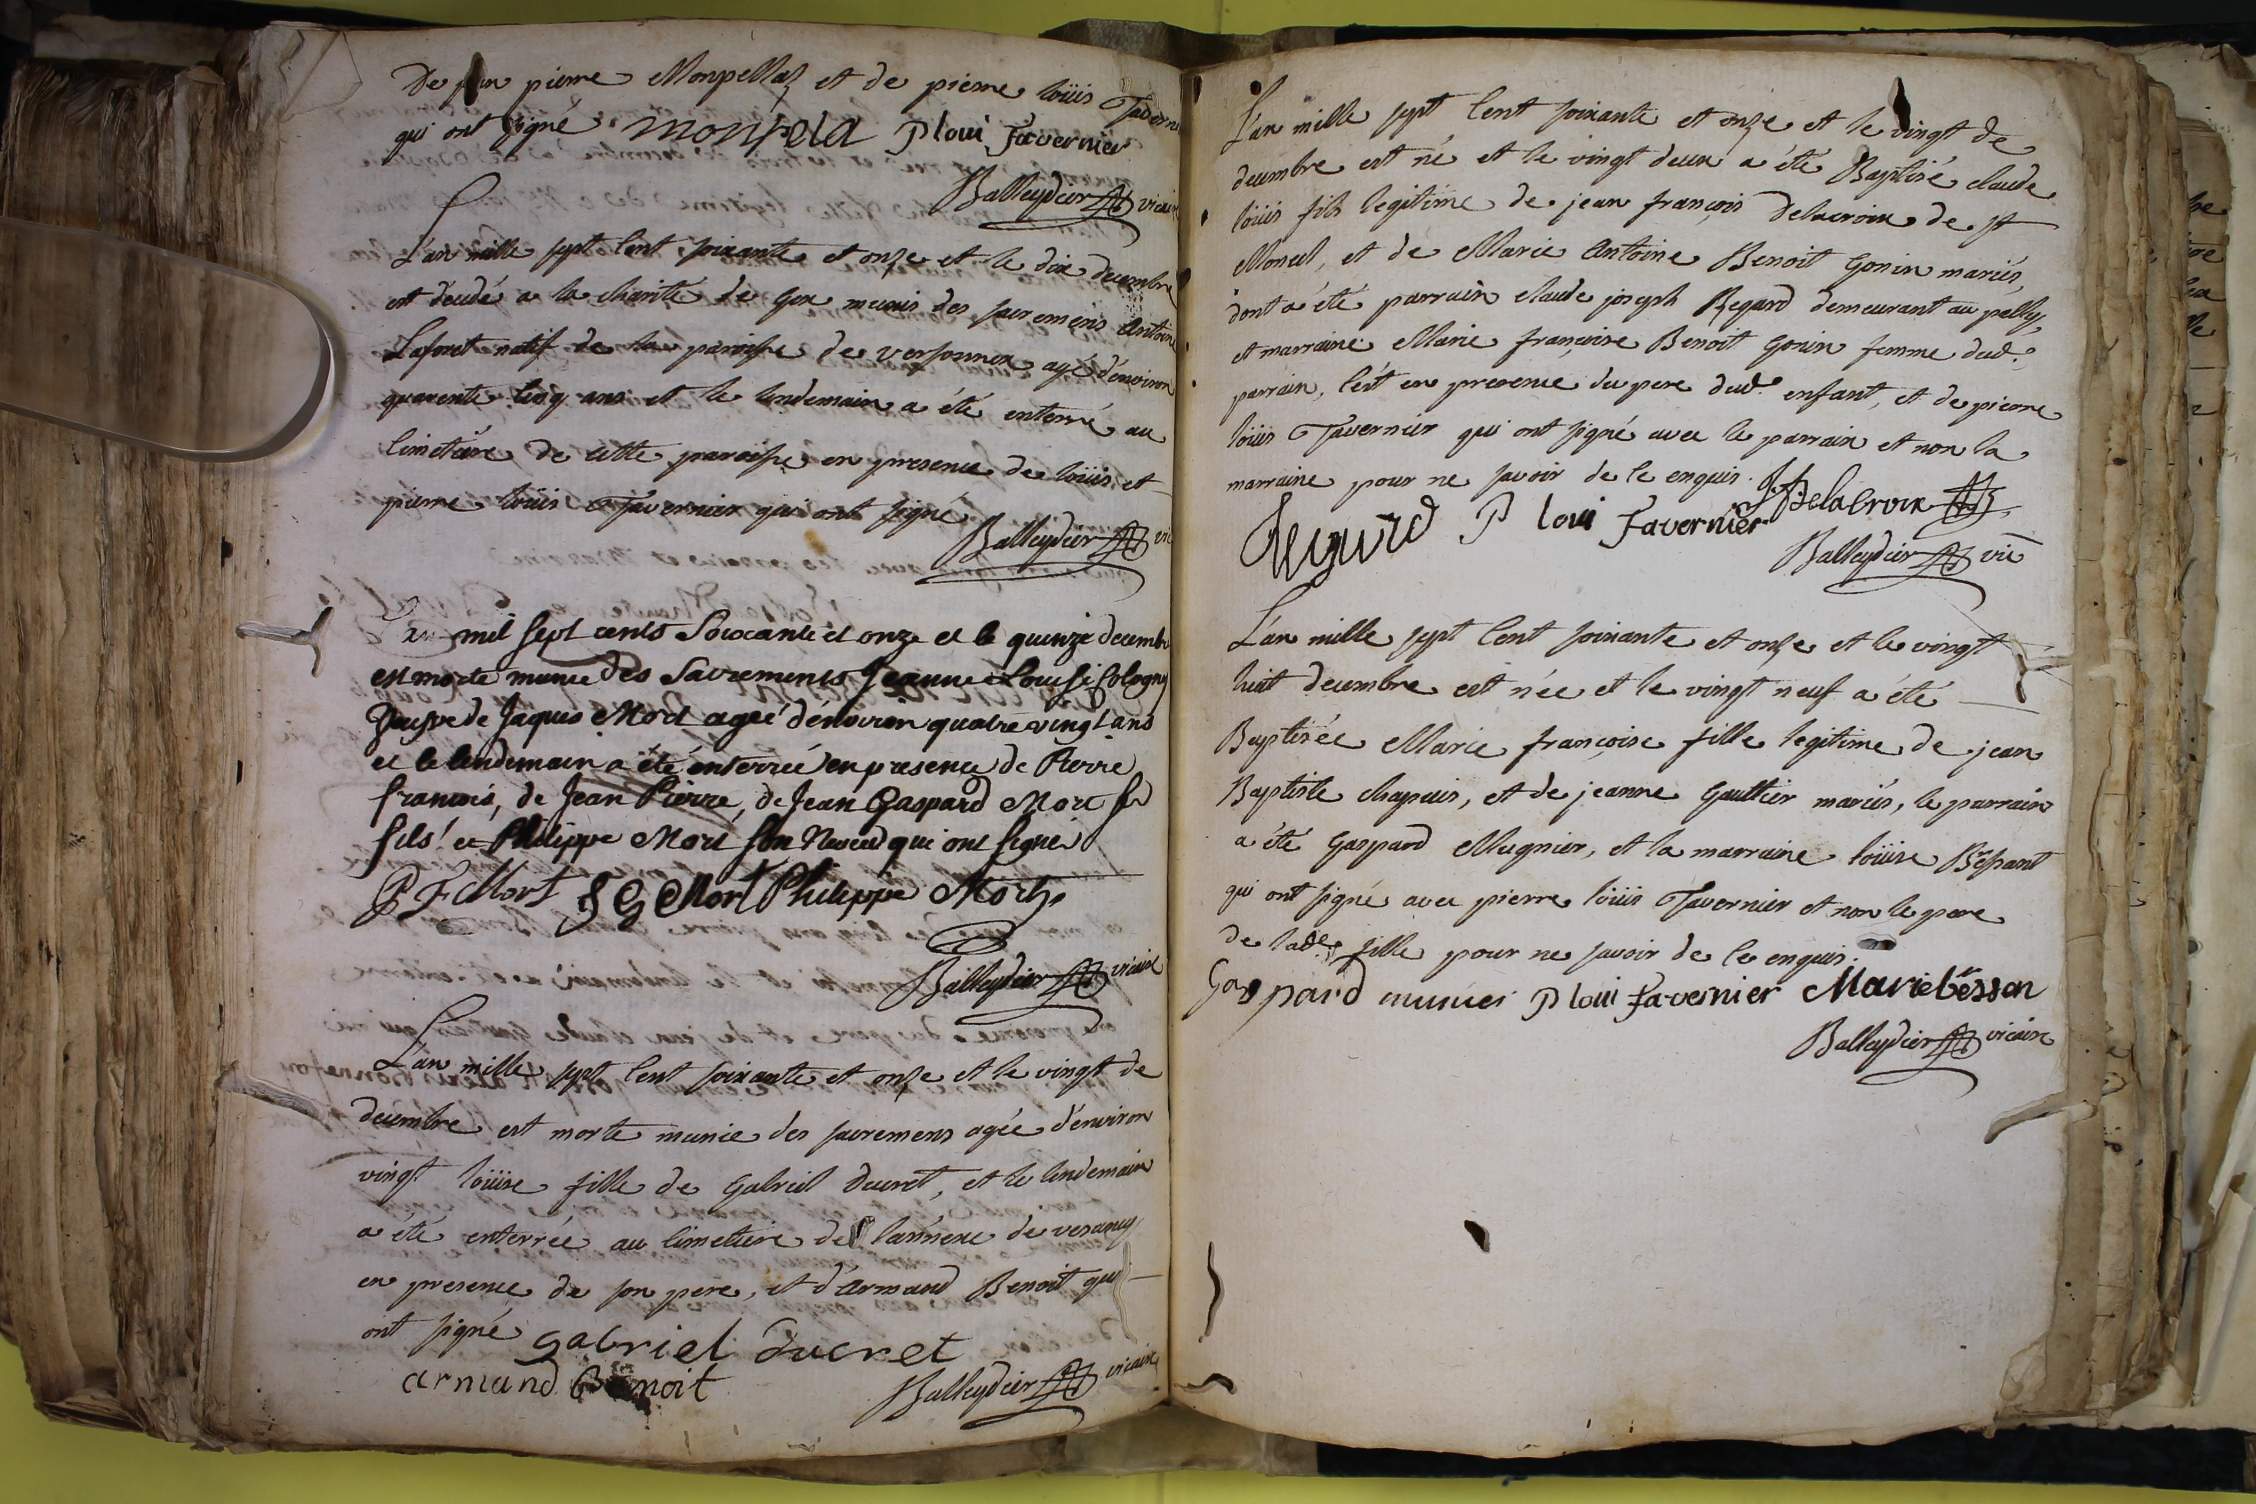 De jean pierre Monpellaz et de pierre loüis Tavernier
qui ont signé monpela P loui Favernier
Balleydier vicaire
L'an mille sept Cent soixante et onze et le dix decembre
est décédé a la charité de Gex munis des sacremens Antoine
Laforet natif de la paroisse de versonnex agé d'environ
quarente Cinq ans et le lendemain a été enterré au
Cimetière de cette paroisse en presence de loüis et
pierre loüis Tavernier qui ont signé
Balleydier vic
L'an mil sept cents Soixante et onze et le quinze decembre
est morte munie des Sacrements Jeanne Louise Cologny
Veufve de Jaques Mort ageé d'environ quatre vingt ans
et le lendemain a été enterrée en presence de Pierre
francois, de Jean Pierre, de Jean Gaspard Mort ses
fils et Philippe Mort son Neveu qui ont signé
P F Mort J G Mort Philippe Mort
Balleydier vicaire
L'an mille sept Cent soixante et onze et le vingt de
decembre est morte munie des sacremens agée d'environ
vingt loüise fille de Gabriel ducret, et le lendemain
a été enterrée au Cimetiere de l'annexe de vesancy
en presence de son pere, et d'armand Benoit qui
ont signé gabriel ducret
armand Benoit
Balleydier vicaire
L'an mille sept Cent soixante et onze et le vingt de
decembre est né et le vingt deux a été Baptisé claude
loüis fils legitime de jean françois Delacroix de st
Moncel, et de Marie Antoine Benoit Gonin mariés,
dont a été parrain claude joseph Regard demeurant au pailly,
et marraine Marie françoise Benoit Gonin femme dud.
parrain, C'est en presence du pere dud. enfant, et de pierre
loüis Tavernier qui ont signé avec le parrain et non la
marraine pour ne savoir de ce enquis. JF Delacroix
Regard P loui Favernier
Balleydier vic
L'an mille sept Cent soixante et onze et le vingt
huit decembre est née et le vingt neuf a été
Baptisée Marie françoise fille legitime de jean
Baptiste chapuis, et de jeanne Gaultier mariés, le parrain
a été Gaspard Mugnier, et la marraine loüise Béssant
qui ont signé avec pierre loüis Tavernier et non le pere
de lade fille pour ne savoir de ce enquis.
Gaspard munier P loui Favernier Marie bésson
Balleydier vicaire